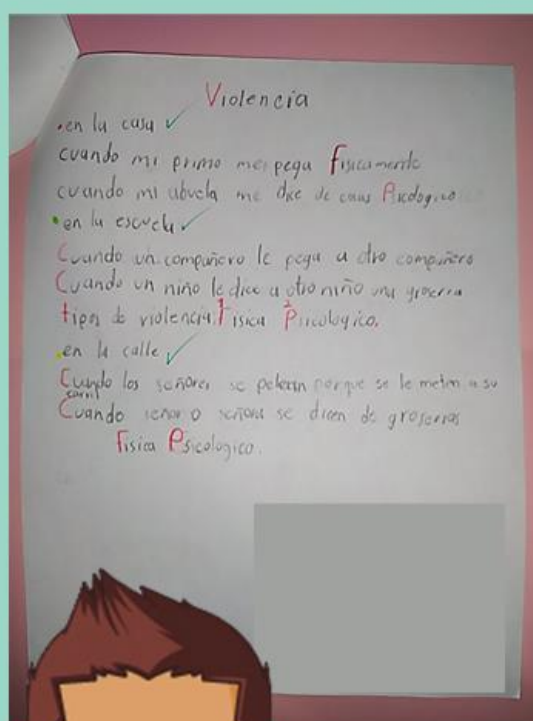 Violencia
•en la casa ✓
cuando mi primo me pega fisicamente
cuando mi abuela me dice de Psicologico
•en la escuela ✓
Cuando un compañero le pega a otro compañero
Cuando un niño le dice a otro niño una groceria
tipos de violencia 1 fisica 2 Psicologico.
•en la calle ✓
Cuando los señores se pelean porque se le meten a su
carril
Cuando señor o señora se dicen de groserias
Fisica Psicologico.